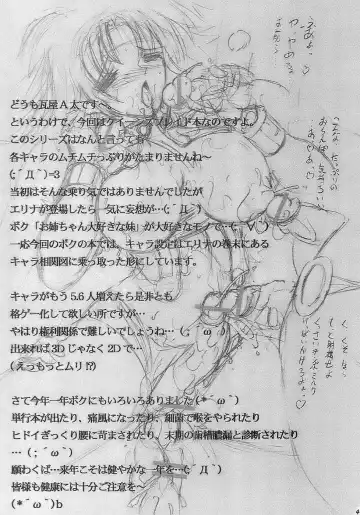 どうも瓦屋A太です～。
というわけで、今回はクイーンズブレイド本なのですよ。
このシリーズはなんと言っても
各キャラのムチムチっぷりがたまりませんね～
(;´Д｀)=3
当初はそんな乗り気ではありませんでしたが
エリナが登場したら一気に妄想が…(;´Д｀)
ボク「お姉ちゃん大好きな妹」が大好きなモノで…(;゜∀゜)
一応今回のボクの本では、キャラ設定はエリナの巻末にある
キャラ相関図に乗っ取った形にしています。
キャラがもう5.6人増えたら是非とも
格ゲー化して欲しい所ですが…
やはり権利関係で難しいでしょうね…(；´ω｀)
出来れば3Dじゃなく2Dで…
(えっもっとムリ!?)
さて今年一年ボクにもいろいろありました(*´ω｀)
単行本が出たり、痛風になったり、細菌で喉をやられたり
ヒドイぎっくり腰に苛まされたり、末期の歯槽膿漏と診断されたり
…(；´ω｀)
願わくば…来年こそは健やかな一年を…(;´Д｀)
皆様も健康には十分ご注意を～
(*´ω｀)b